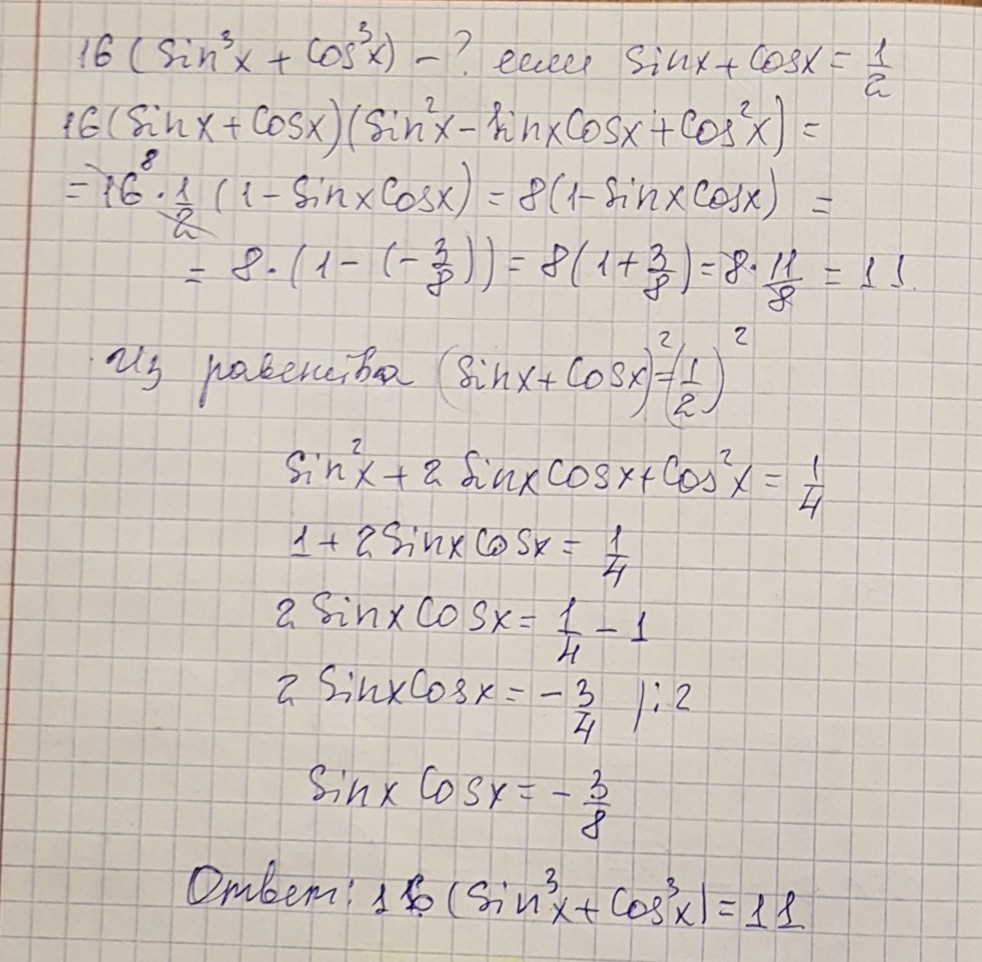 16 (sin³x + cos³x) - ? если sinx + cosx = 1/2
16(sinx + cosx)(sin²x - sinxcosx + cos²x) =
= 16⁸ · 1/2 (1 - sinxcosx) = 8(1 - sinxcosx) =
= 8 · (1 - (-3/8)) = 8(1 + 3/8) = 8 · 11/8 = 11.
Из равенства (sinx + cosx)² = (1/2)²
sin²x + 2 sinxcosx + cos²x = 1/4
1 + 2sinxcosx = 1/4
2 sinx cosx = 1/4 - 1
2 sinxcosx = - 3/4 |:2
sinx cosx = - 3/8
Ответ: 16 (sin³x + cos³x) = 11